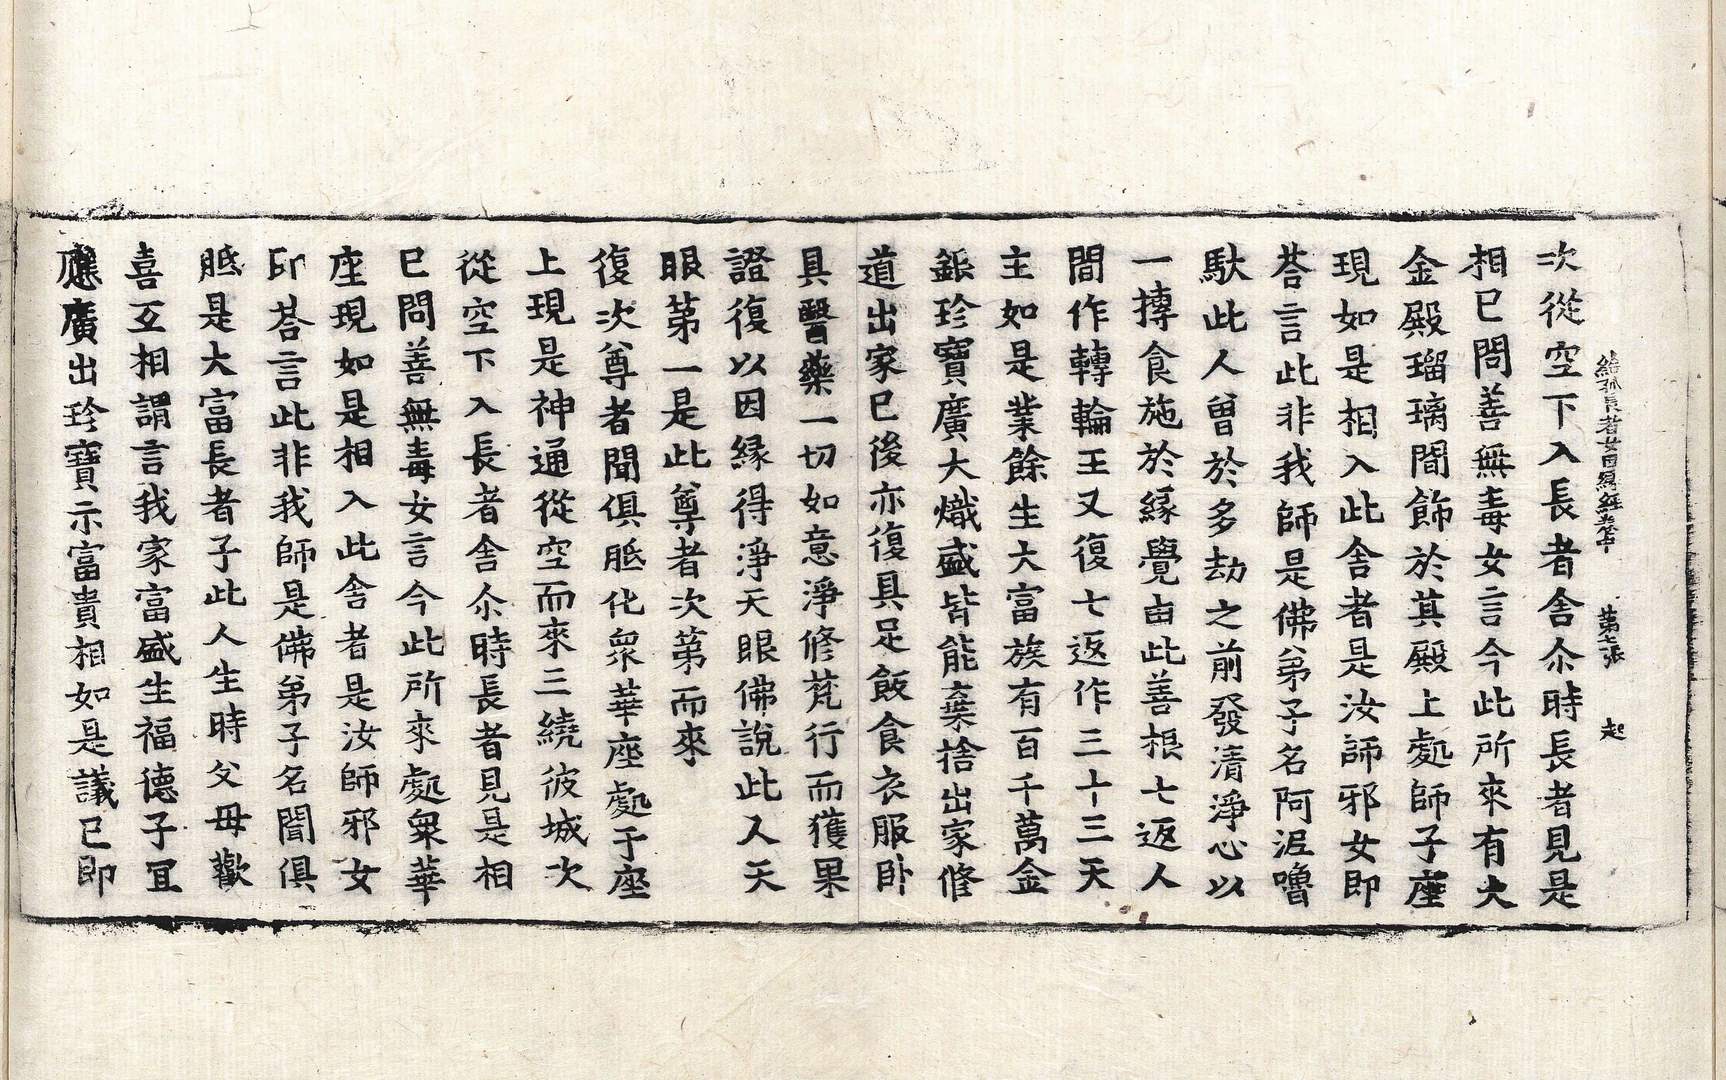 給孤長者女因緣經卷中 第七張 起
次從空下入長者舍尒時長者見是
相巳問善無毒女言今此所來有大
金殿瑠璃間飾於其殿上處師子座
現如是相入此舍者是汝師邪女即
荅言此非我師是佛弟子名阿泥嚕
馱此人曾於多劫之前發清淨心以
一摶食施於緣覺由此善根七返人
間作轉輪王又復七返作三十三天
主如是業餘生大富族有百千萬金
銀珍寶廣大熾盛皆能棄捨出家修
道出家巳後亦復具足飯食衣服卧
具醫藥一切如意淨修梵行而獲果
證復以因緣得淨天眼佛說此人天
眼第一是此尊者次第而來
復次尊者聞俱胝化衆華座處于座
上現是神通從空而來三繞彼城次
從空下入長者舍尒時長者見是相
巳問善無毒女言今此所來處衆華
座現如是相入此舍者是汝師邪女
即荅言此非我師是佛弟子名聞俱
胝是大富長者子此人生時父母歡
喜互相謂言我家富盛生福德子冝
應廣出珍寶示富貴相如是議巳即